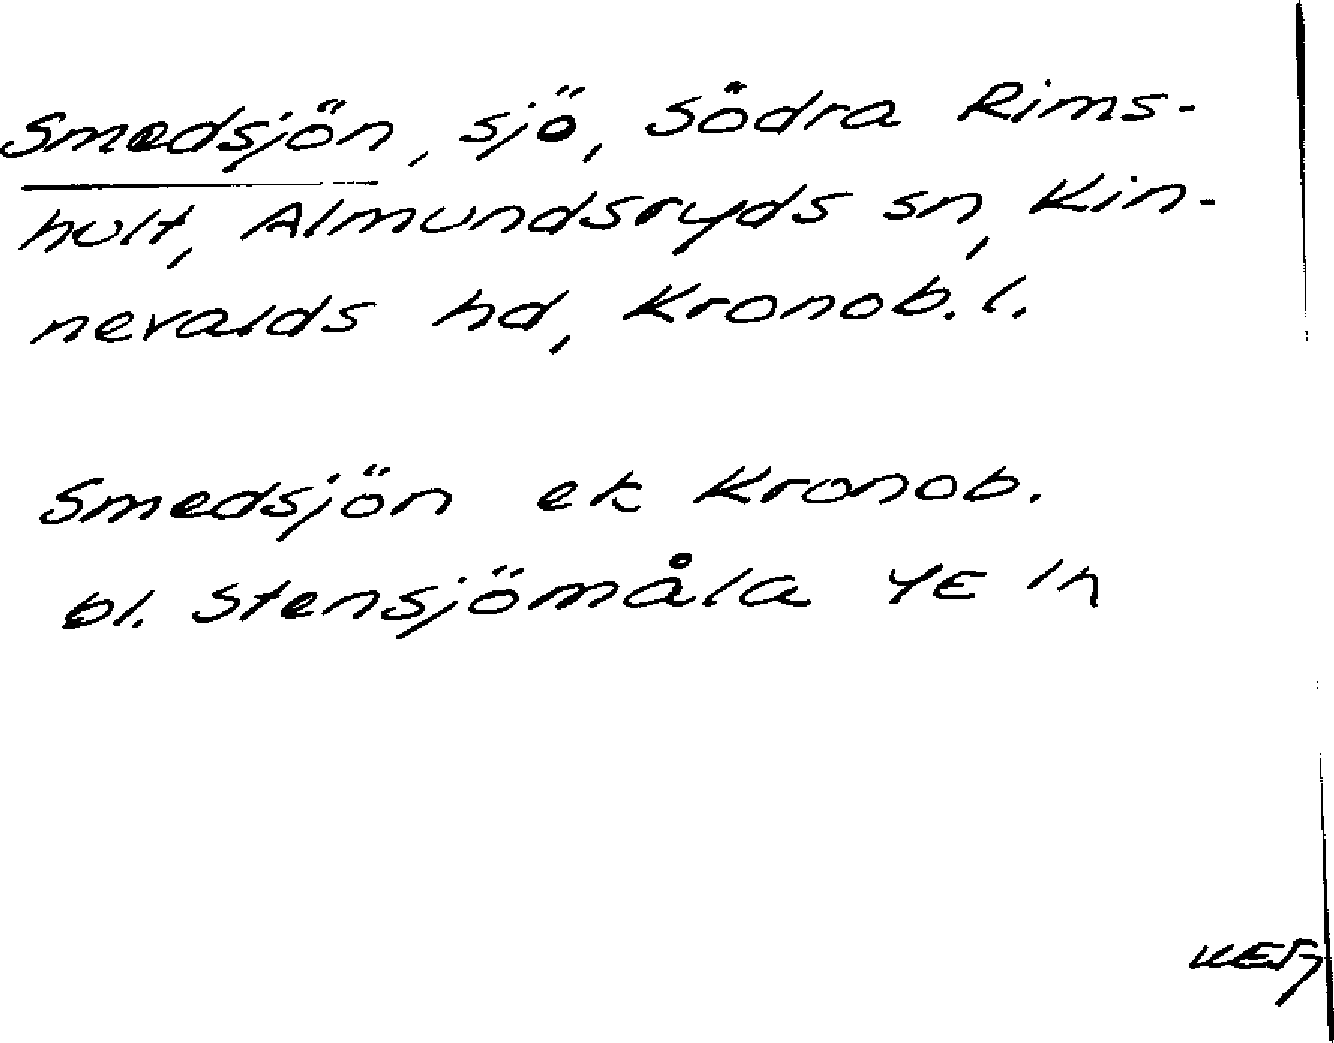 Smedsjön, sjö, Södra Rims-
hult, Almundsryds sn, Kin-
nevalds hd, Kronob. l.
Smedsjön ek Kronob.
bl. Stensjömåla 4E